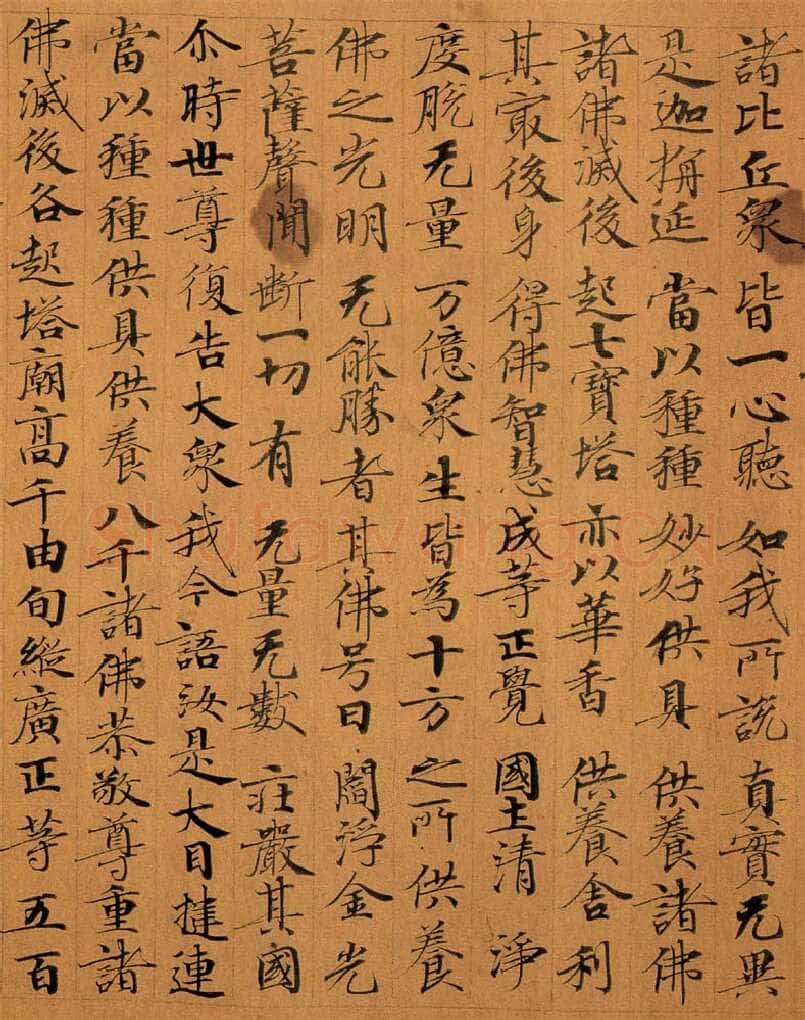 諸比丘眾 皆一心聽 如我所說 真實无異
是迦旃延 當以種種 妙好供具 供養諸佛
諸佛滅後 起七寶塔 亦以華香 供養舍利
其冣後身 得佛智慧 成等正覺 國土清淨
度脫无量 万億眾生 皆為十方 之所供養
佛之光明 无能勝者 其佛号曰 閻浮金光
菩薩聲聞 斷一切有 无量无數 莊嚴其國
尒時世尊復告大眾我今語汝是大目揵連
當以種種供具供養八千諸佛恭敬尊重諸
佛滅後各起塔廟高千由旬縱廣正等五百